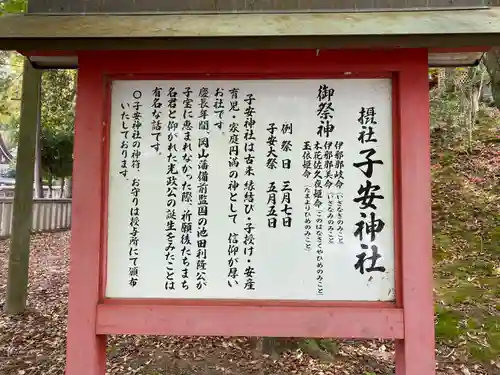 摂社 子安神社
御祭神
伊邪那岐命(いざなぎのみこと)
伊邪那美命(いざなみのみこと)
木花佐久夜姫命(このはなさくやひめのみこと)
玉依姫命(たまよりひめのみこと)
例祭日 三月七日
子安大祭 五月五日
子安神社は古来 縁結び・子授け・安産
育児・家庭円満の神として、信仰が厚い
お社です。
慶長年間、岡山藩備前監国の池田利隆公が
子宝に恵まれなかった際、祈願後たちまち
名君と仰がれた光政公の誕生をみたことは
有名な話です。
○子安神社の神符、お守りは授与所にて頒布
いたしております。